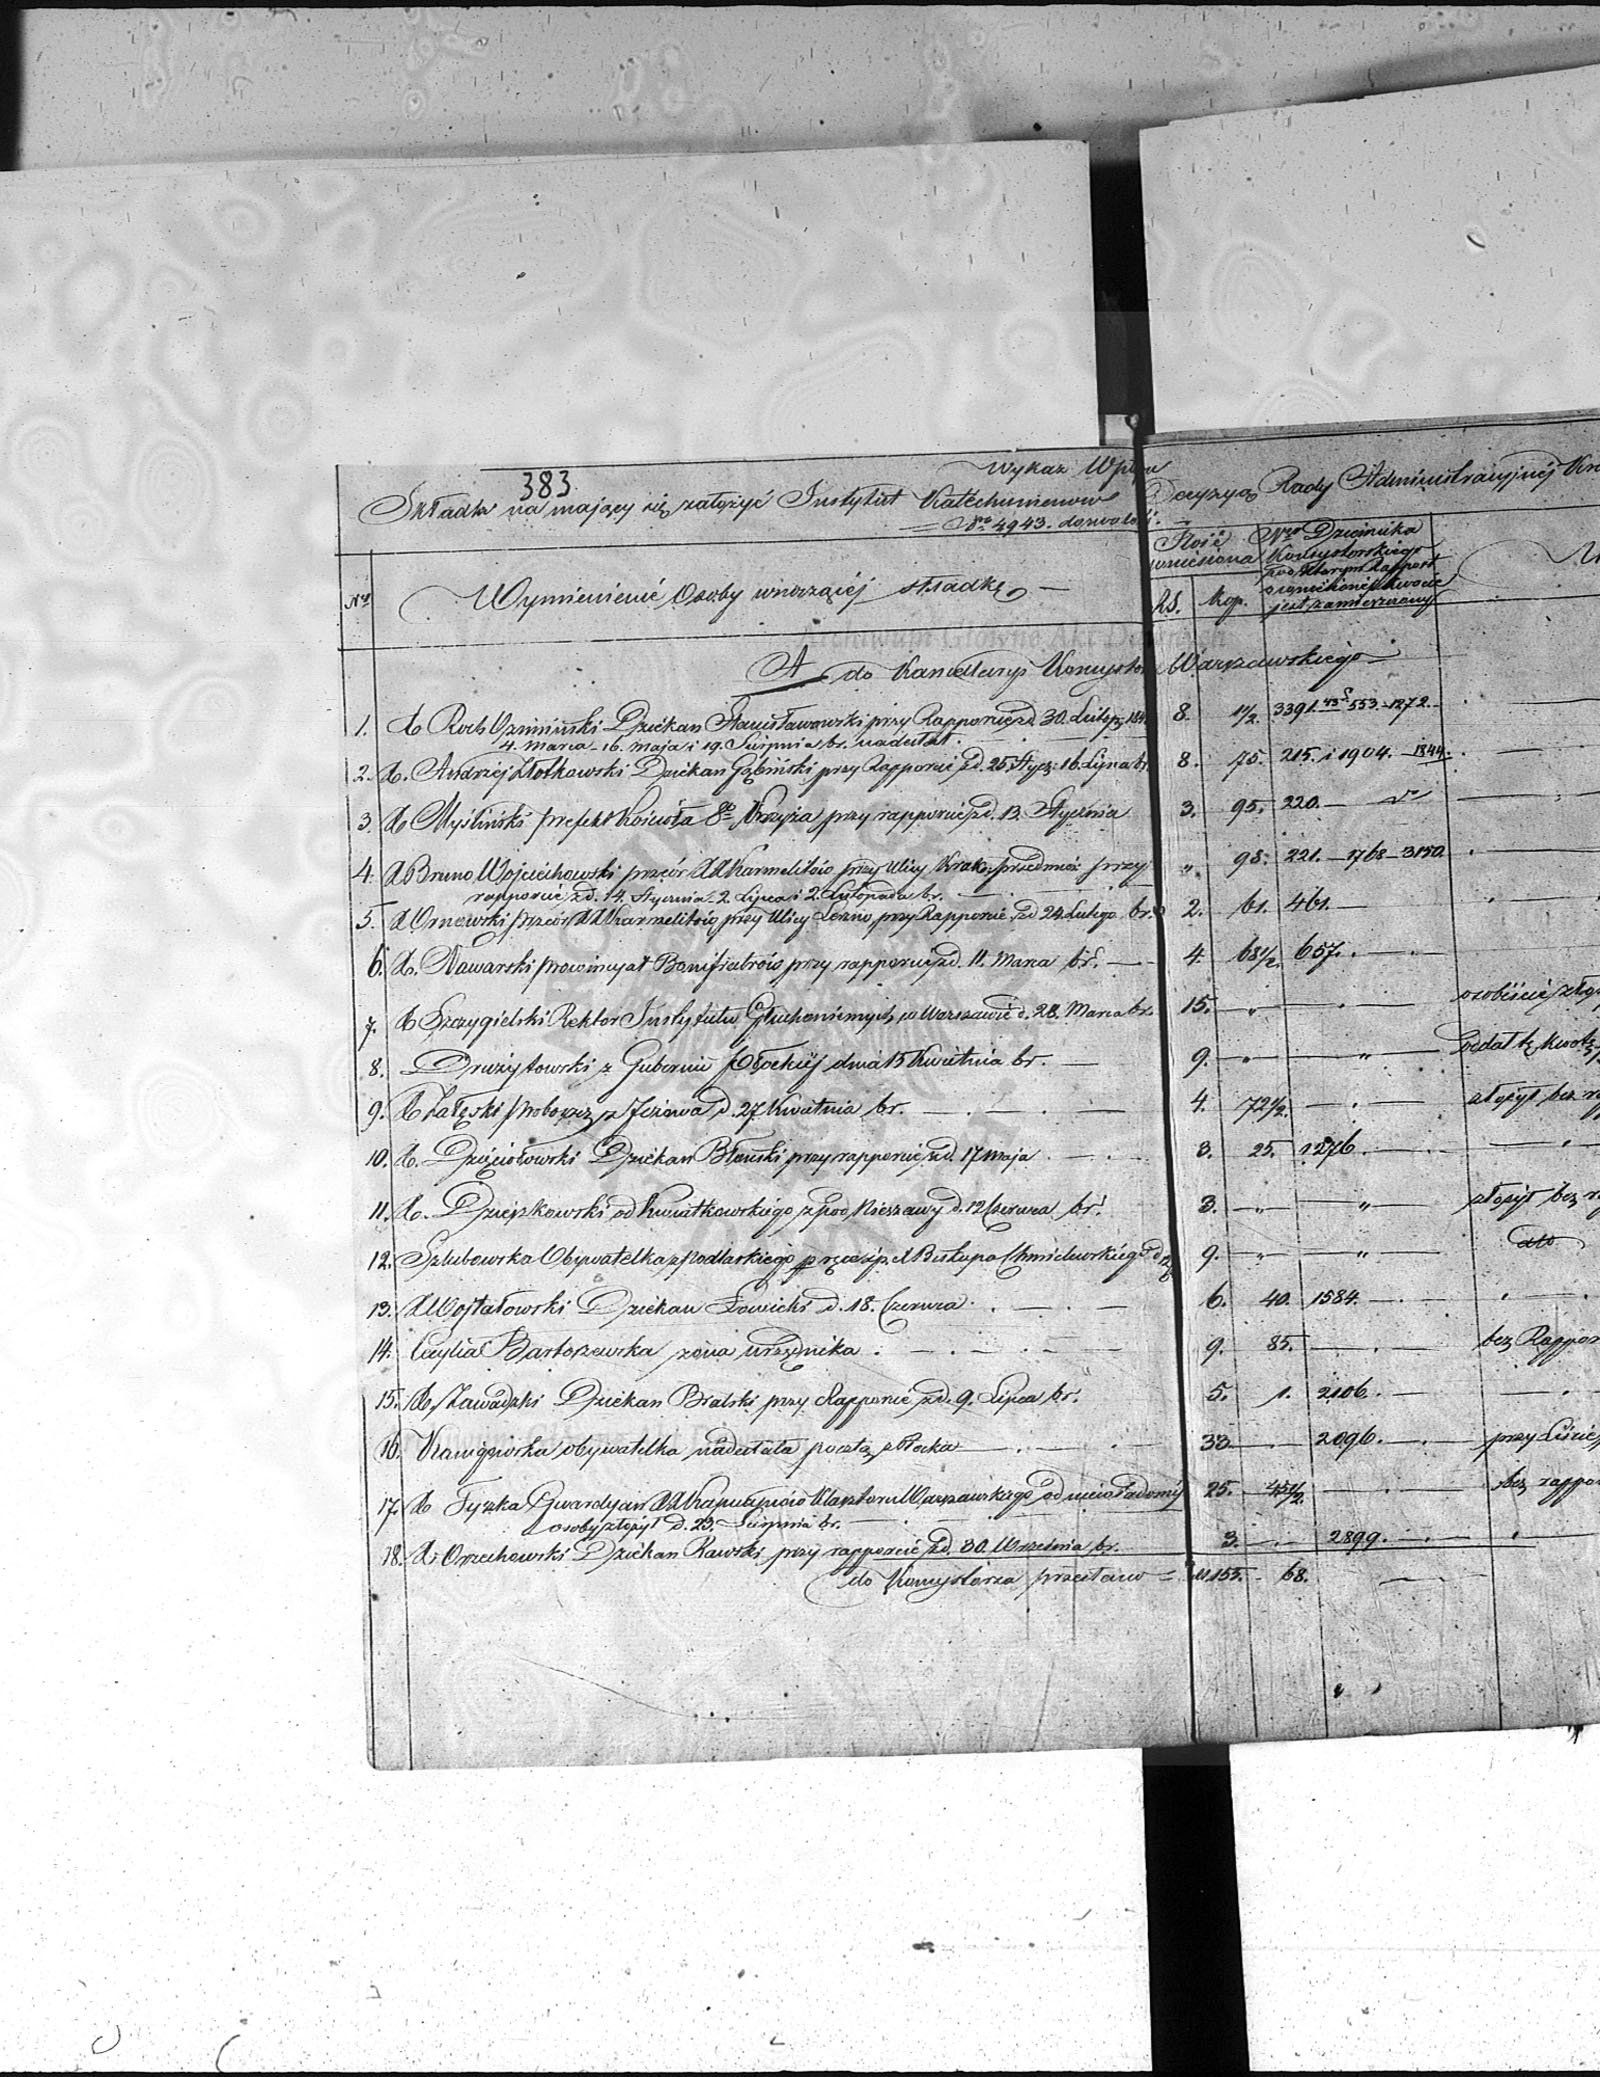 383
Wykaz Wpływu
Składki na mający się założyć Instytut Katechumenow Decyzyą Rady Administracyjnéj
Nro 4943. dozwoloné.
Nro
Wymienienié Osoby wnorząiéj składkę
Ilość wniesiona
RS.
Kop.
Nro Dziennika
Konsystorskiego
pod którym Rapport
o wniesionéj kwocie
jest zamieszczony
A do Kancellaryi Konsystorza Warszawskiego
1. X Roch Dziekan Stanisławowski przy Rapporcie zd. 30. Lutego 8. 1/2. 3391. 553. 1272.
4. Marca - 16. Maja i 19. Sierpnia br. nadesłał.
2. X. Andrzej Złotkowski Dziekan Gąbiński przy Rapporcie zd. 25 Stycz: 16. Lipca br. 8. 75. 215. i 1904. 1844.
3. X Myśliński prefekt Kościoła Sgo Krzyża przy rapporcie zd. 13. Stycznia 3. 95. 220.
4. X Bruno Wojciechowski przeór XX Karmelitów przy Ulicy Krak: przedmieś: przy „ 98. 221. - 1768 - 3150.
rapporcie zd. 14. Stycznia - 2. Lipca i 2. Listopada br.
5. X przeór XX Karmelitów przy Ulicy Leszno przy Rapporcie zd 24. Lutego br. 2. 61. 461.
6. X. Nawarski prowincyał Bonifratrów przy rapporcie zd. 11. Marca br. 4. 68 1/2. 657.
7. X Szczygielski Rektor Instytutu Głuchoniemych w Warszawie d. 28. Marca br. 15. „ osobiście złoż
8. Drużytowski z Gubernii Płockiéj dnia 15 Kwietnia br. 9. „ „ Oddał tę kwotę
9. X Załęski proboszcz z Jeżowa d. 27 Kwietnia br. 4. 72 1/2. złożył bez
10. X. Dzięciołowski Dziekan Błoński przy rapporcie zd. 17 Maja 3. 25. 1276.
11. X. od Kwiatkowskiego z pod Nieszawy d. 12 Czerwca br. 3. „ „ złożył bez
12. Szlubowska Obywatelka z Podlaskiego p ręce śp. X Biskupa Chmielewskiego 9. „ „ dto
13. X Wojtałowski Dziekan Łowicki d. 18. Czerwca 6. 40. 1584.
14. Cecylia Bartoszewska żona urzędnika. 9. 85. bez Rappor
15. X. Zawadzki Dziekan Bialski przy Rapporcie zd. 9. Lipca br. 5. 1. 2106.
16. obywatelka nadesłała pocztą z Płocka 33. 2096. przy Liście
17. X Tyszka Gwardyan XX Kapucynów Klasztoru Warszawskiego od niewiadoméj 25. 45 1/2. bez rappor
osoby złożył d. 23. Sierpnia br.
18. X. Orzechowski Dziekan Rawski, przy rapporcie zd. 30. Września br. 3. 2899.
do Konsystorza 153. 68.